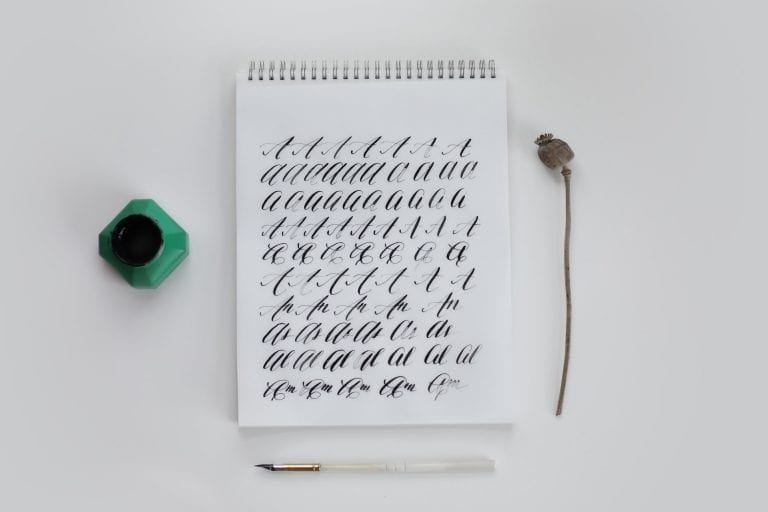 A A A A A A A
a a a a a a a a a a
a a a a a a a a a
A A A A A A A A
A A A A A A A
A A A A A A A
An An An An An
As As As As As As
al al al al al al al
am am am am am